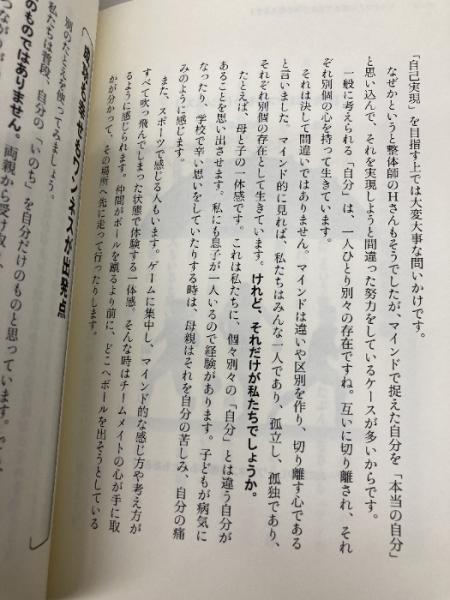 「自己実現」を目指す上では大変大事な問いかけです。
なぜかというと整体師のHさんもそうでしたが、マインドで捉えた自分を「本当の自分」
と思い込んで、それを実現しようと間違った努力をしているケースが多いからです。
一般に考えられる「自分」は、一人ひとり別々の存在ですね。互いに切り離され、それ
ぞれ別個の心を持って生きています。
それは決して間違いではありません。マインドは違いや区別を作り、切り離す心である
と言いました。マインド的に見れば、私たちはみんな一人であり、孤立し、孤独であり、
それぞれ別個の存在として生きています。けれど、それだけが私たちでしょうか。
たとえば、母と子の一体感です。これは私たちに、個々別々の「自分」とは違う自分が
あることを思い出させます。私にも息子が一人いるので経験があります。子どもが病気に
なったり、学校で辛い思いをしていたりする時は、母親はそれを自分の苦しみ、自分の痛
みのように感じます。
また、スポーツで感じる人もいます。ゲームに集中し、マインド的な感じ方や考え方が
すべて吹っ飛んでしまった状態で体験する一体感。そんな時はチームメイトの心が手に取
るように感じられます。仲間がボールを蹴るより前に、どこへボールを出そうとしている
かが分かって、その場所へ先に走って行ったりします。
出発点
別のたとえを使ってみましょう。
私たちは普段、自分の「いのち」を自分だけのものと思っています。
のものではありません。両親から受け取り、